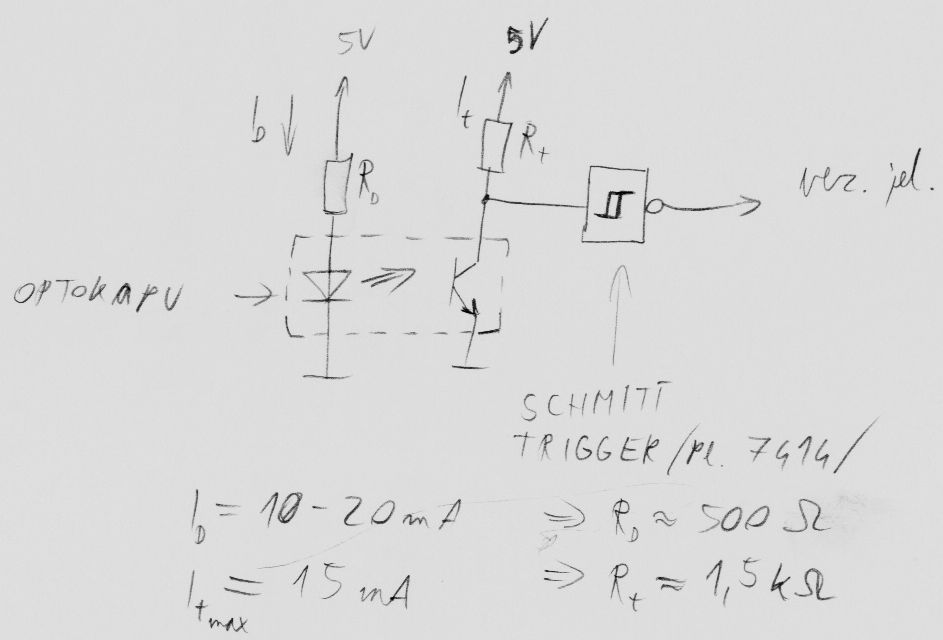 5V 5V
I_D I_t
R_D R_t
vez. jel.
OPTOKAPU
SCHMITT
TRIGGER /pl. 7414/
I_D = 10-20mA ⇒ R_D ≈ 500 Ω
I_tmax = 15mA ⇒ R_t ≈ 1,5kΩ